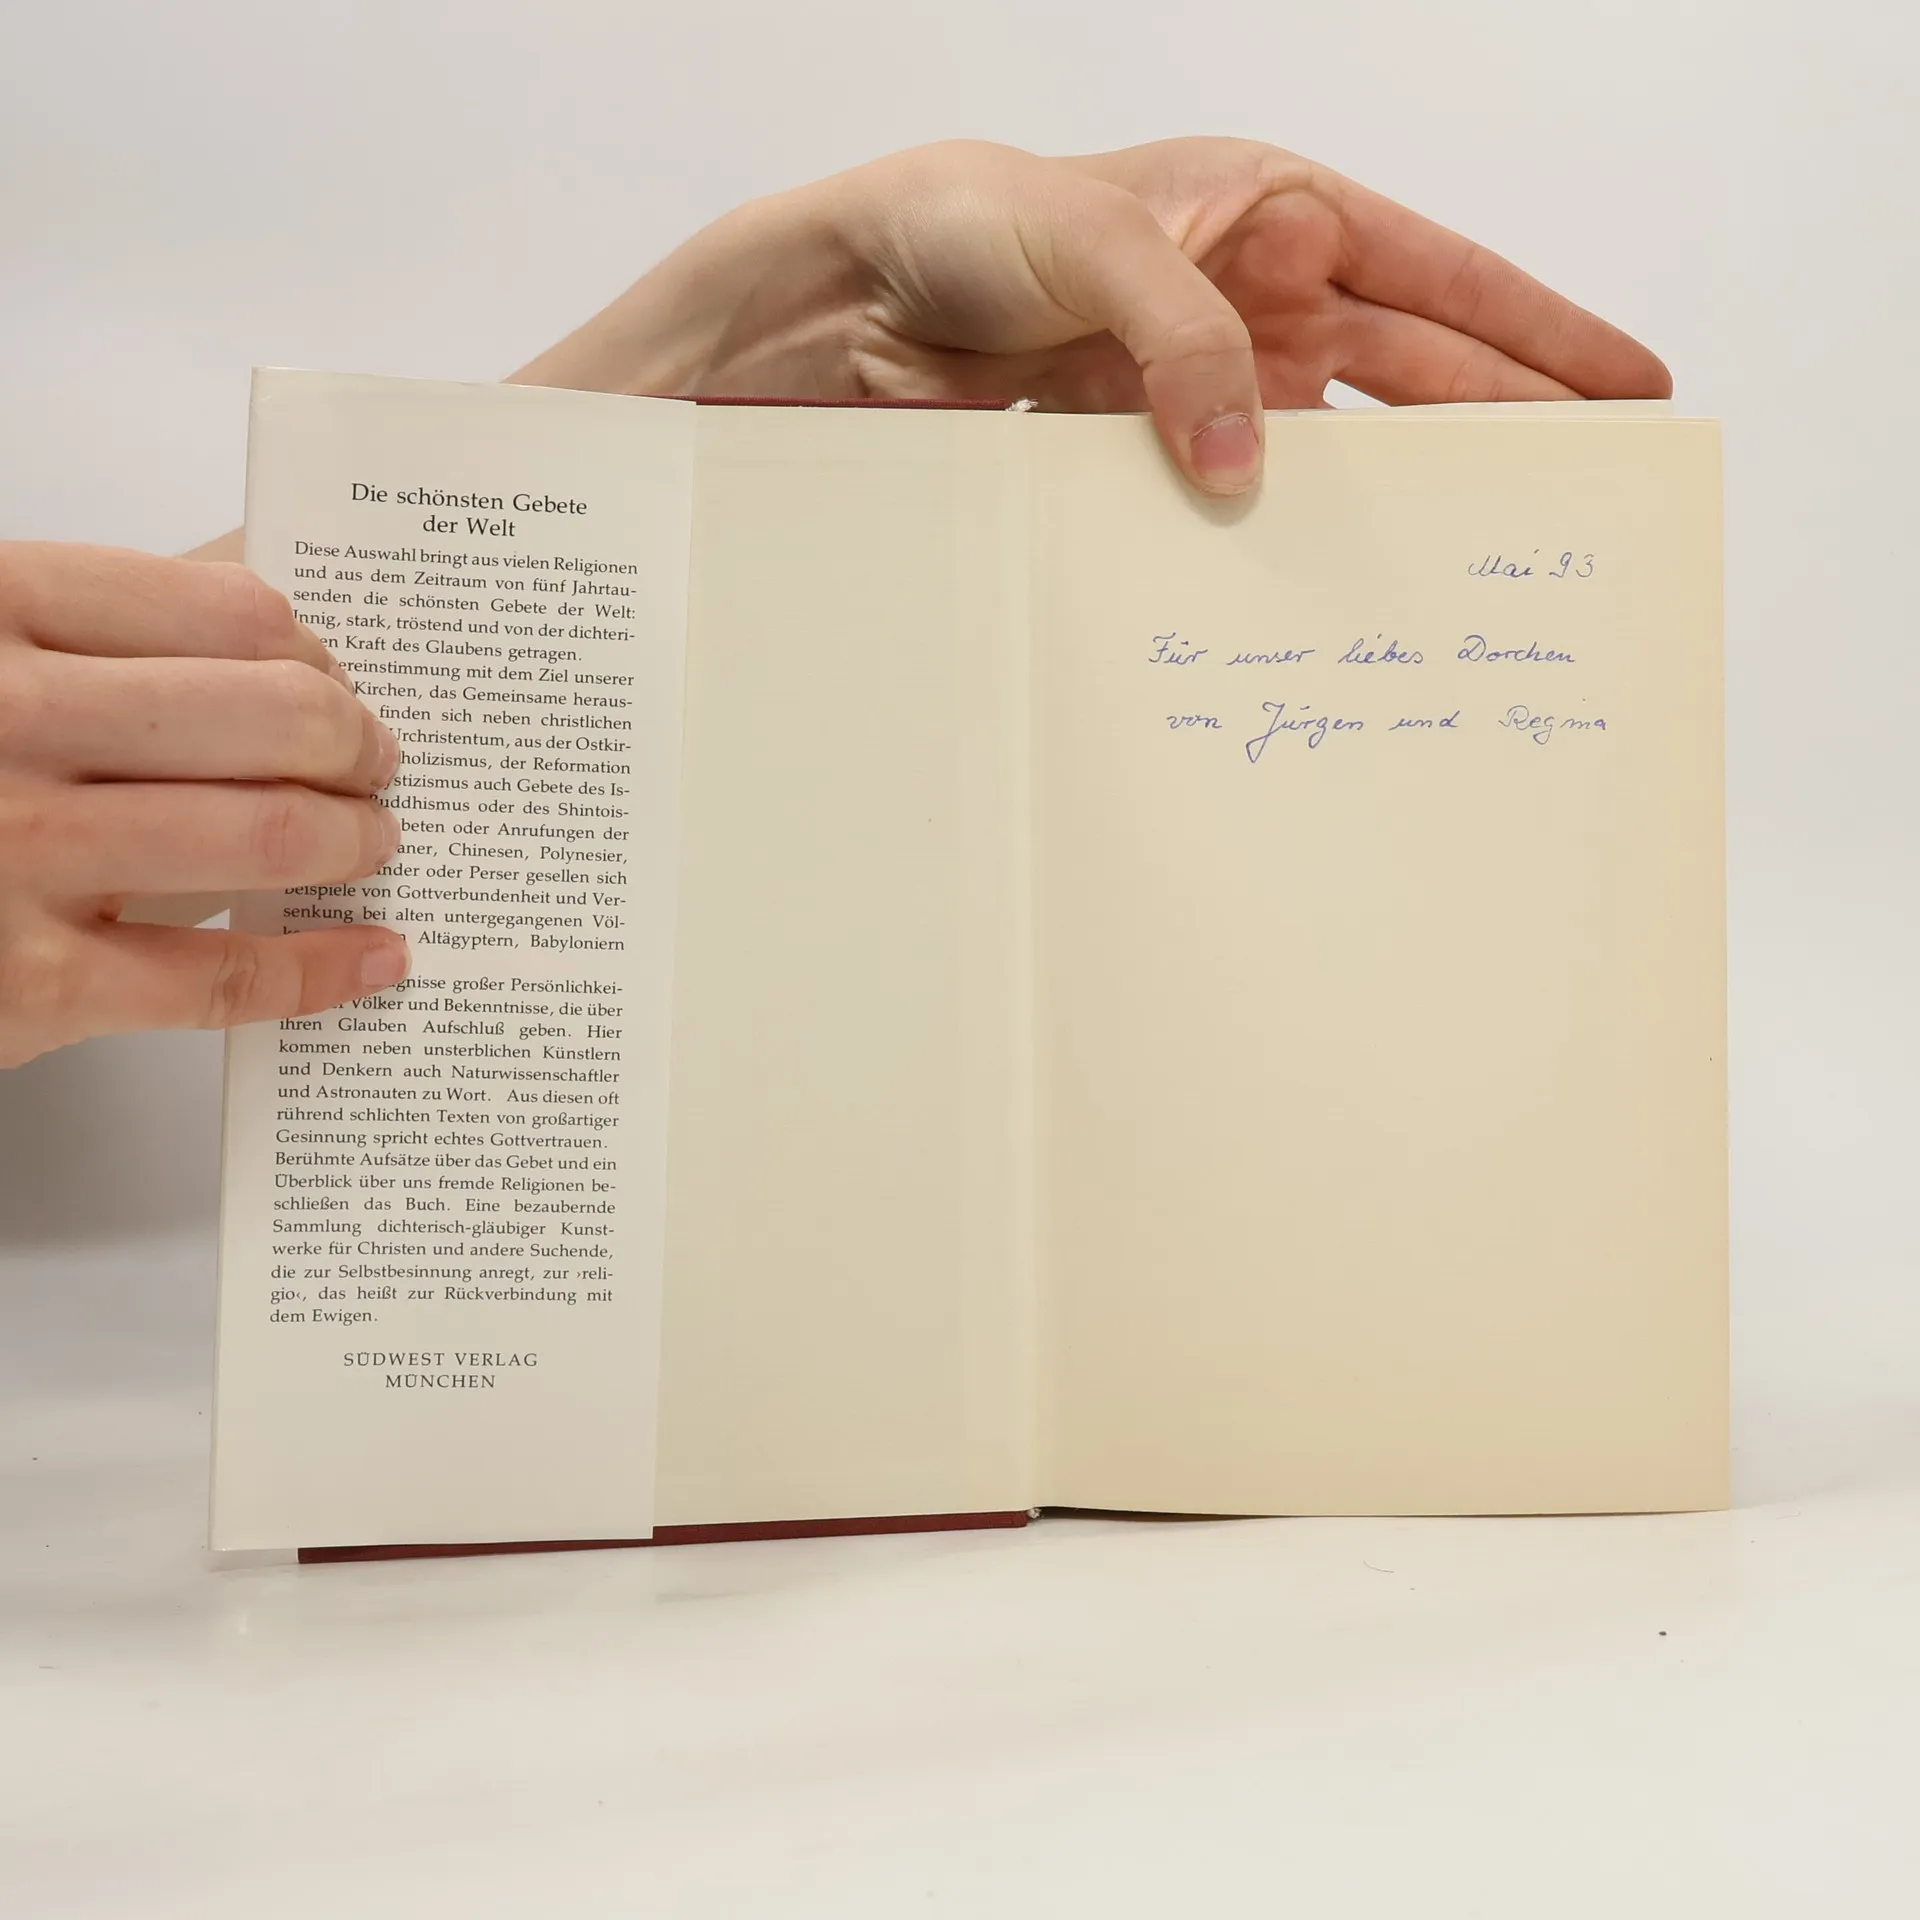 Die schönsten Gebete
der Welt
Diese Auswahl bringt aus vielen Religionen
und aus dem Zeitraum von fünf Jahrtau-
senden die schönsten Gebete der Welt:
Innig, stark, tröstend und von der dichteri-
en Kraft des Glaubens getragen.
ereinstimmung mit dem Ziel unserer
Kirchen, das Gemeinsame heraus-
finden sich neben christlichen
Urchristentum, aus der Ostkir-
holizismus, der Reformation
ystizismus auch Gebete des Is-
Buddhismus oder des Shintois-
beten oder Anrufungen der
aner, Chinesen, Polynesier,
inder oder Perser gesellen sich
Beispiele von Gottverbundenheit und Ver-
senkung bei alten untergegangenen Völ-
Altägyptern, Babyloniern
gnisse großer Persönlichkei-
Völker und Bekenntnisse, die über
ihren Glauben Aufschluß geben. Hier
kommen neben unsterblichen Künstlern
und Denkern auch Naturwissenschaftler
und Astronauten zu Wort. Aus diesen oft
rührend schlichten Texten von großartiger
Gesinnung spricht echtes Gottvertrauen.
Berühmte Aufsätze über das Gebet und ein
Überblick über uns fremde Religionen be-
schließen das Buch. Eine bezaubernde
Sammlung dichterisch-gläubiger Kunst-
werke für Christen und andere Suchende,
die zur Selbstbesinnung anregt, zur ›reli-
gio‹, das heißt zur Rückverbindung mit
dem Ewigen.
SÜDWEST VERLAG
MÜNCHEN
Mai 93
Für unser liebes Dorchen
von Jürgen und Regina